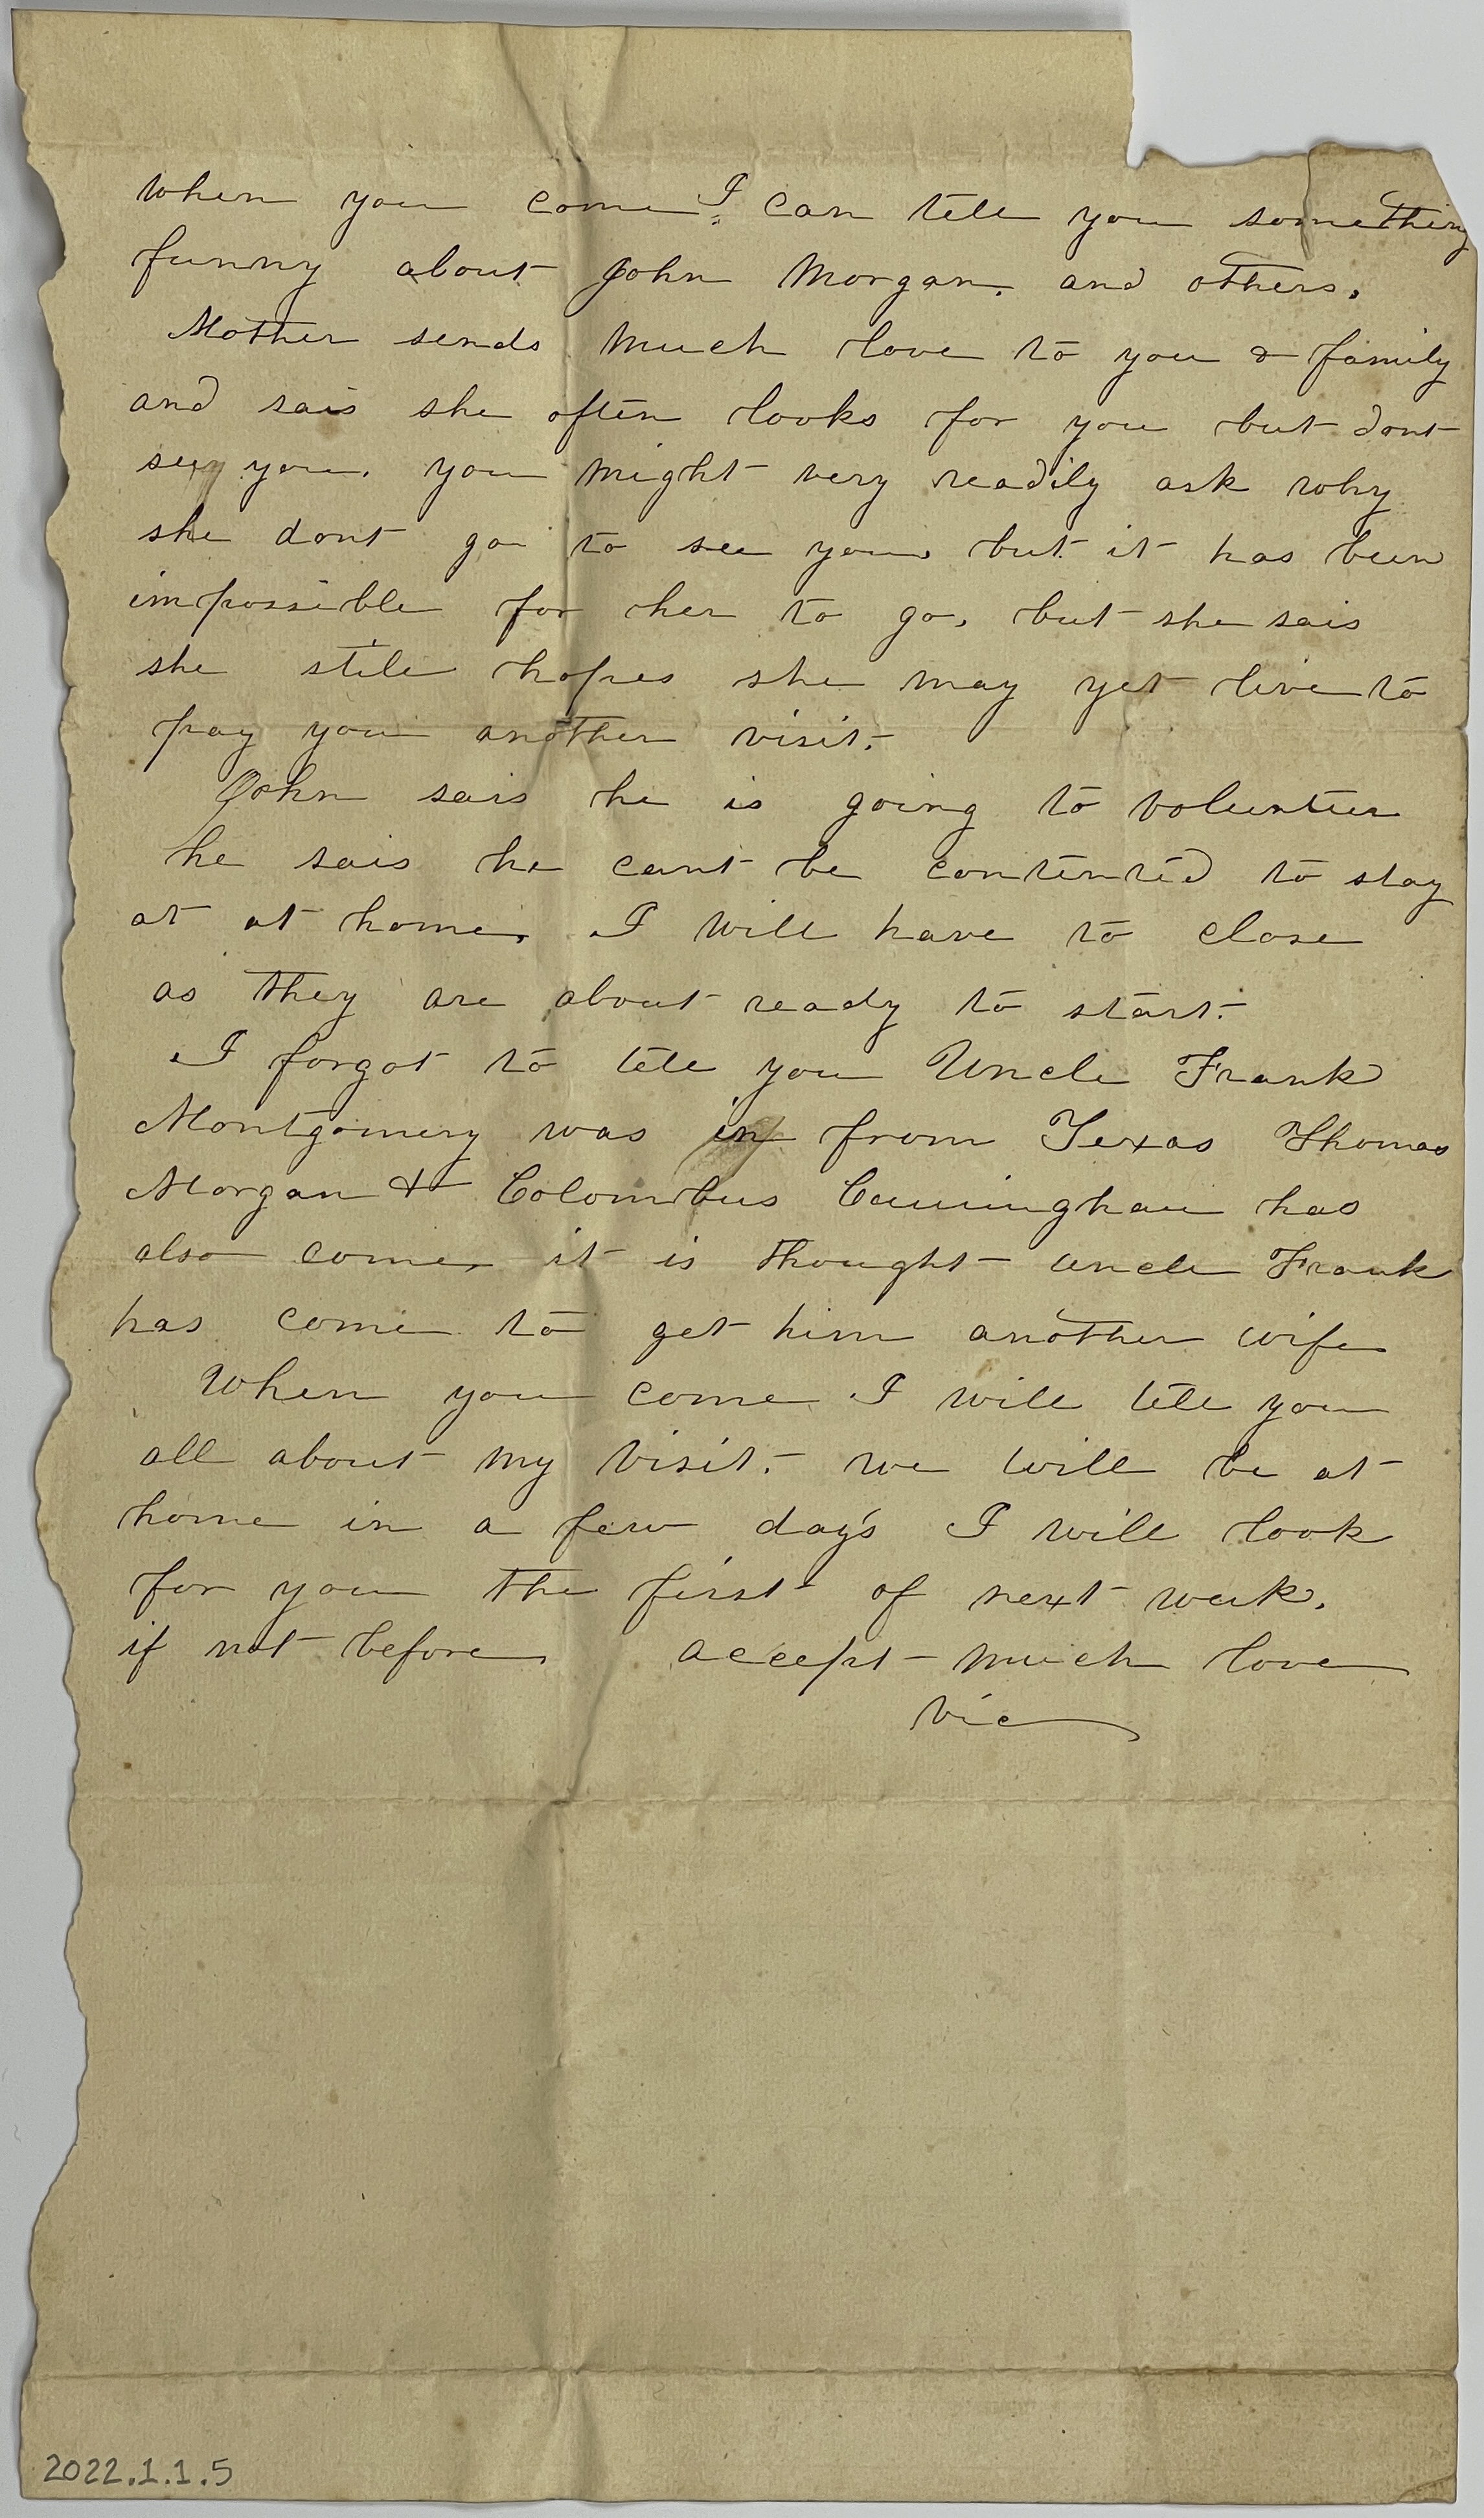 When you come I can tell you something
funny about John Morgan, and others.
Mother sends much love to you & family
and sais she often looks for you but dont
see you. you might very readily ask why
she dont go to see you, but it has been
impossible for her to go, but she sais
she still hopes she may yet live to
pay you another visit.
John sais he is going to volunteer
he sais he cant be contented to stay
at at home, I will have to close
as they are about ready to start.
I forgot to tell you Uncle Frank
Montgomery was in from Texas Thomas
Morgan & Colombus Cunningham has
also come, it is thought uncle Frank
has come to get him another wife
When you come I will tell you
all about my visit. we will be at
home in a few day's I will look
for you the first of next week,
if not before, accept much love
Vic
2022.1.1.5